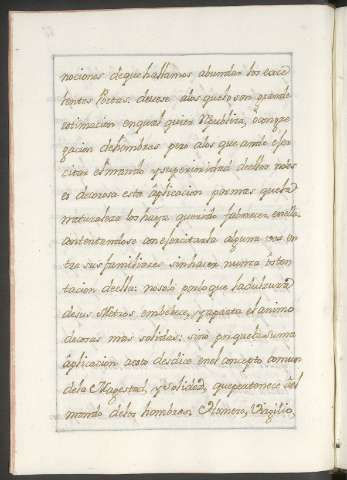 nociones de que hallamos abundar los exce
lentes Poetas. devese alos que lo son grande
estimacion en qual quier Republica, ò congre
gacion de hombres pero alos que an de exer
citar el mando y superioridad dellos no les
es decorosa esta aplicacion por mas que la
naturaleza los haya querido favorecer en ella
contentandose con exercitarla alguna vez en
tre sus familiares sin hacer nunca osten
tacion de ella: no solo por lo que la dulzura
de sus Metros embelece, y aparta el animo
de cosas mas solidas: sino por que la suma
aplicacion a esto desdice en el concepto comun
de la Magestad, y solidez, que pertenece al
mando de los hombres. Homero, Virgilio,